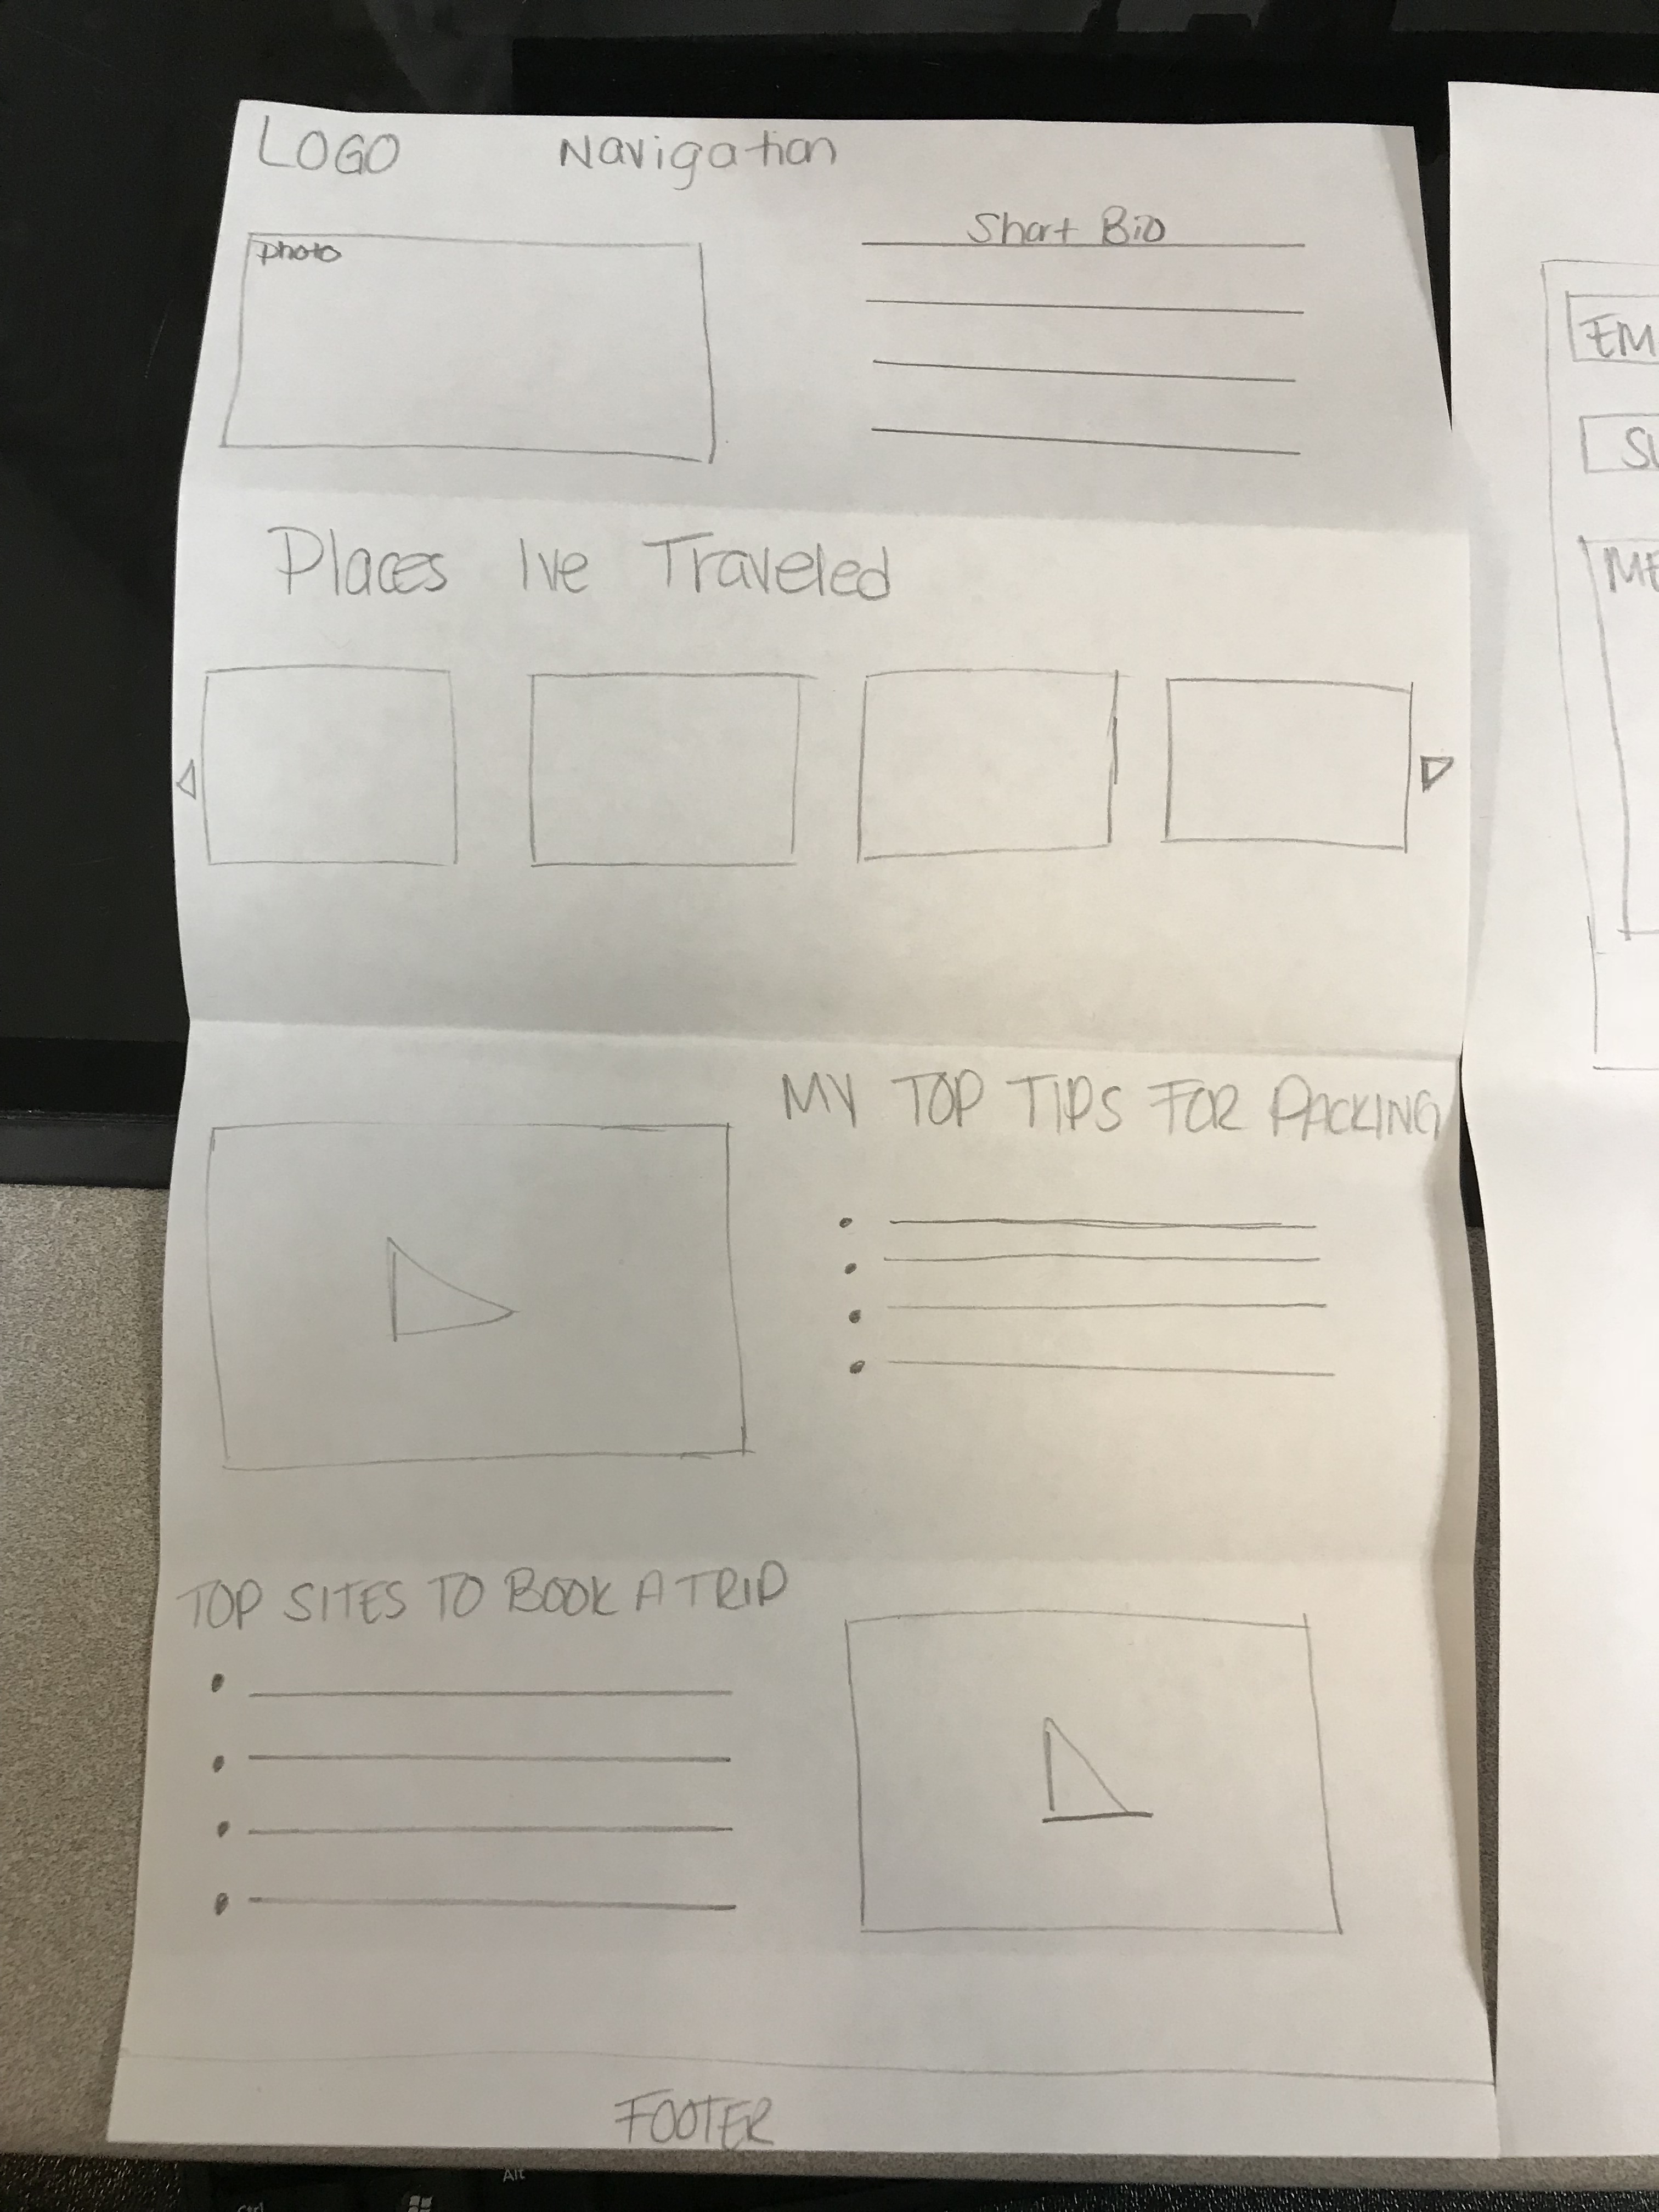 LOGO Navigation
Short Bio
photo
Places Ive Traveled
MY TOP TIPS FOR PACKING
TOP SITES TO BOOK A TRIP
FOOTER
EM
SU
ME
Alt
Ctrl